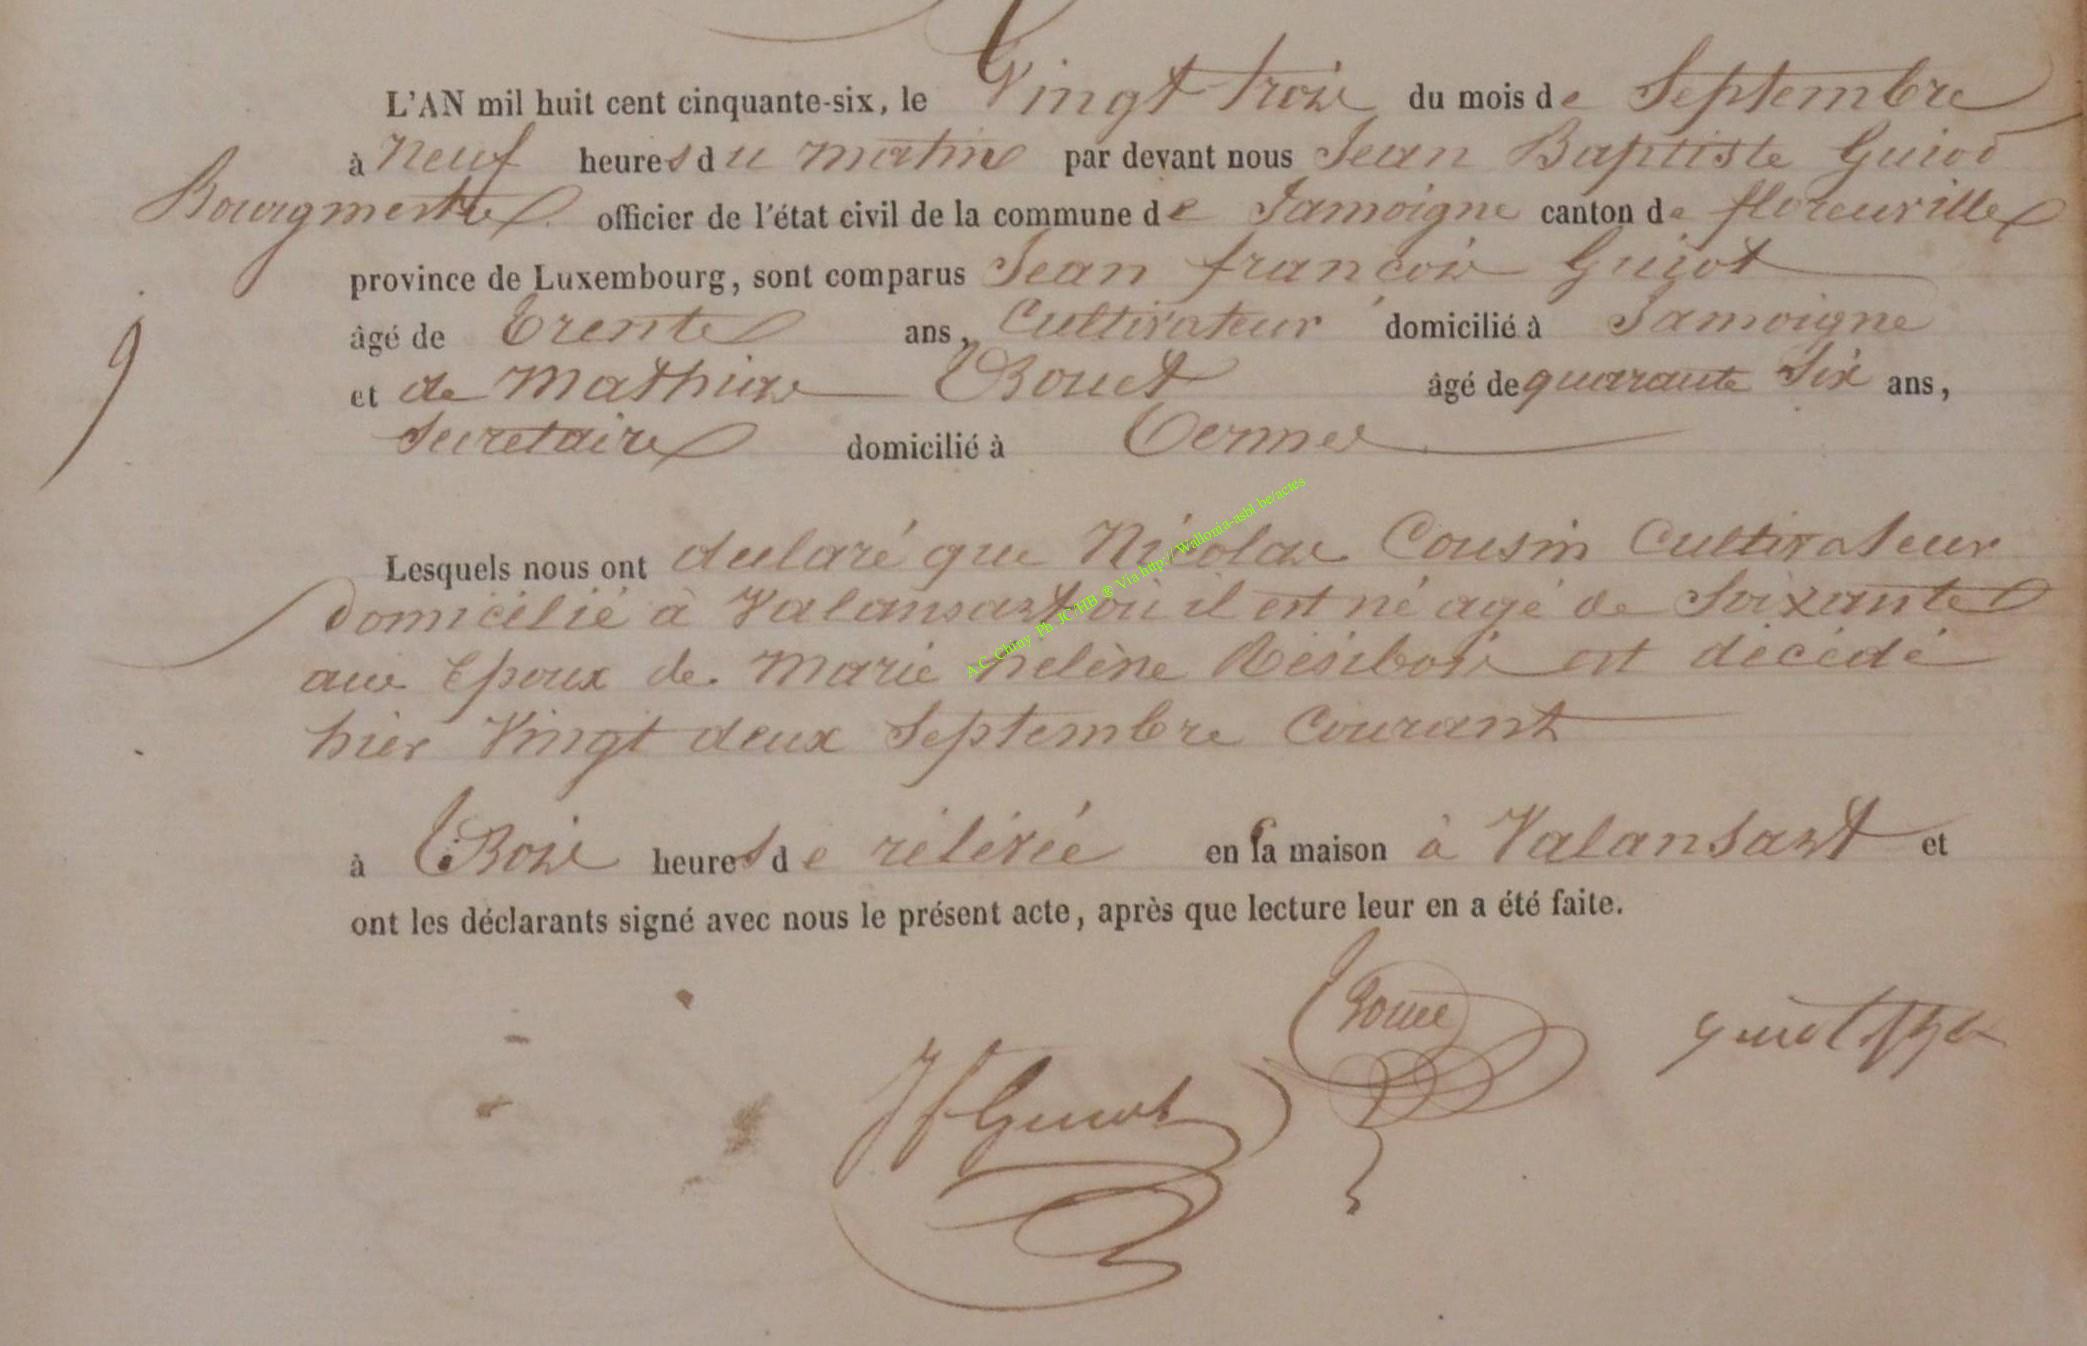 L'AN mil huit cent cinquante-six, le Vingt trois du mois de Septembre
à Neuf heures du matin par devant nous Jean Baptiste Guiot
Bourgmestre officier de l'état civil de la commune de Jamoigne canton de florenville
province de Luxembourg, sont comparus Jean françois Guiot
âgé de trente ans, Cultivateur domicilié à Jamoigne
et de Mathias âgé de quarante Six ans,
Secretaire domicilié à Termes
Lesquels nous ont declaré que Nicolas Cousin Cultivateur
domicilié à Valansart où il est né agé de Soixante
ans Epoux de Marie helène Résibois est décédé
hier Vingt deux Septembre Courant
à Trois heures de rélévée en sa maison à Valansart et
ont les déclarants signé avec nous le présent acte, après que lecture leur en a été faite.
JfGuiot
A.C. Chiny Ph JC/HB ® Via http://Wallonia-asbl.be/actes
9